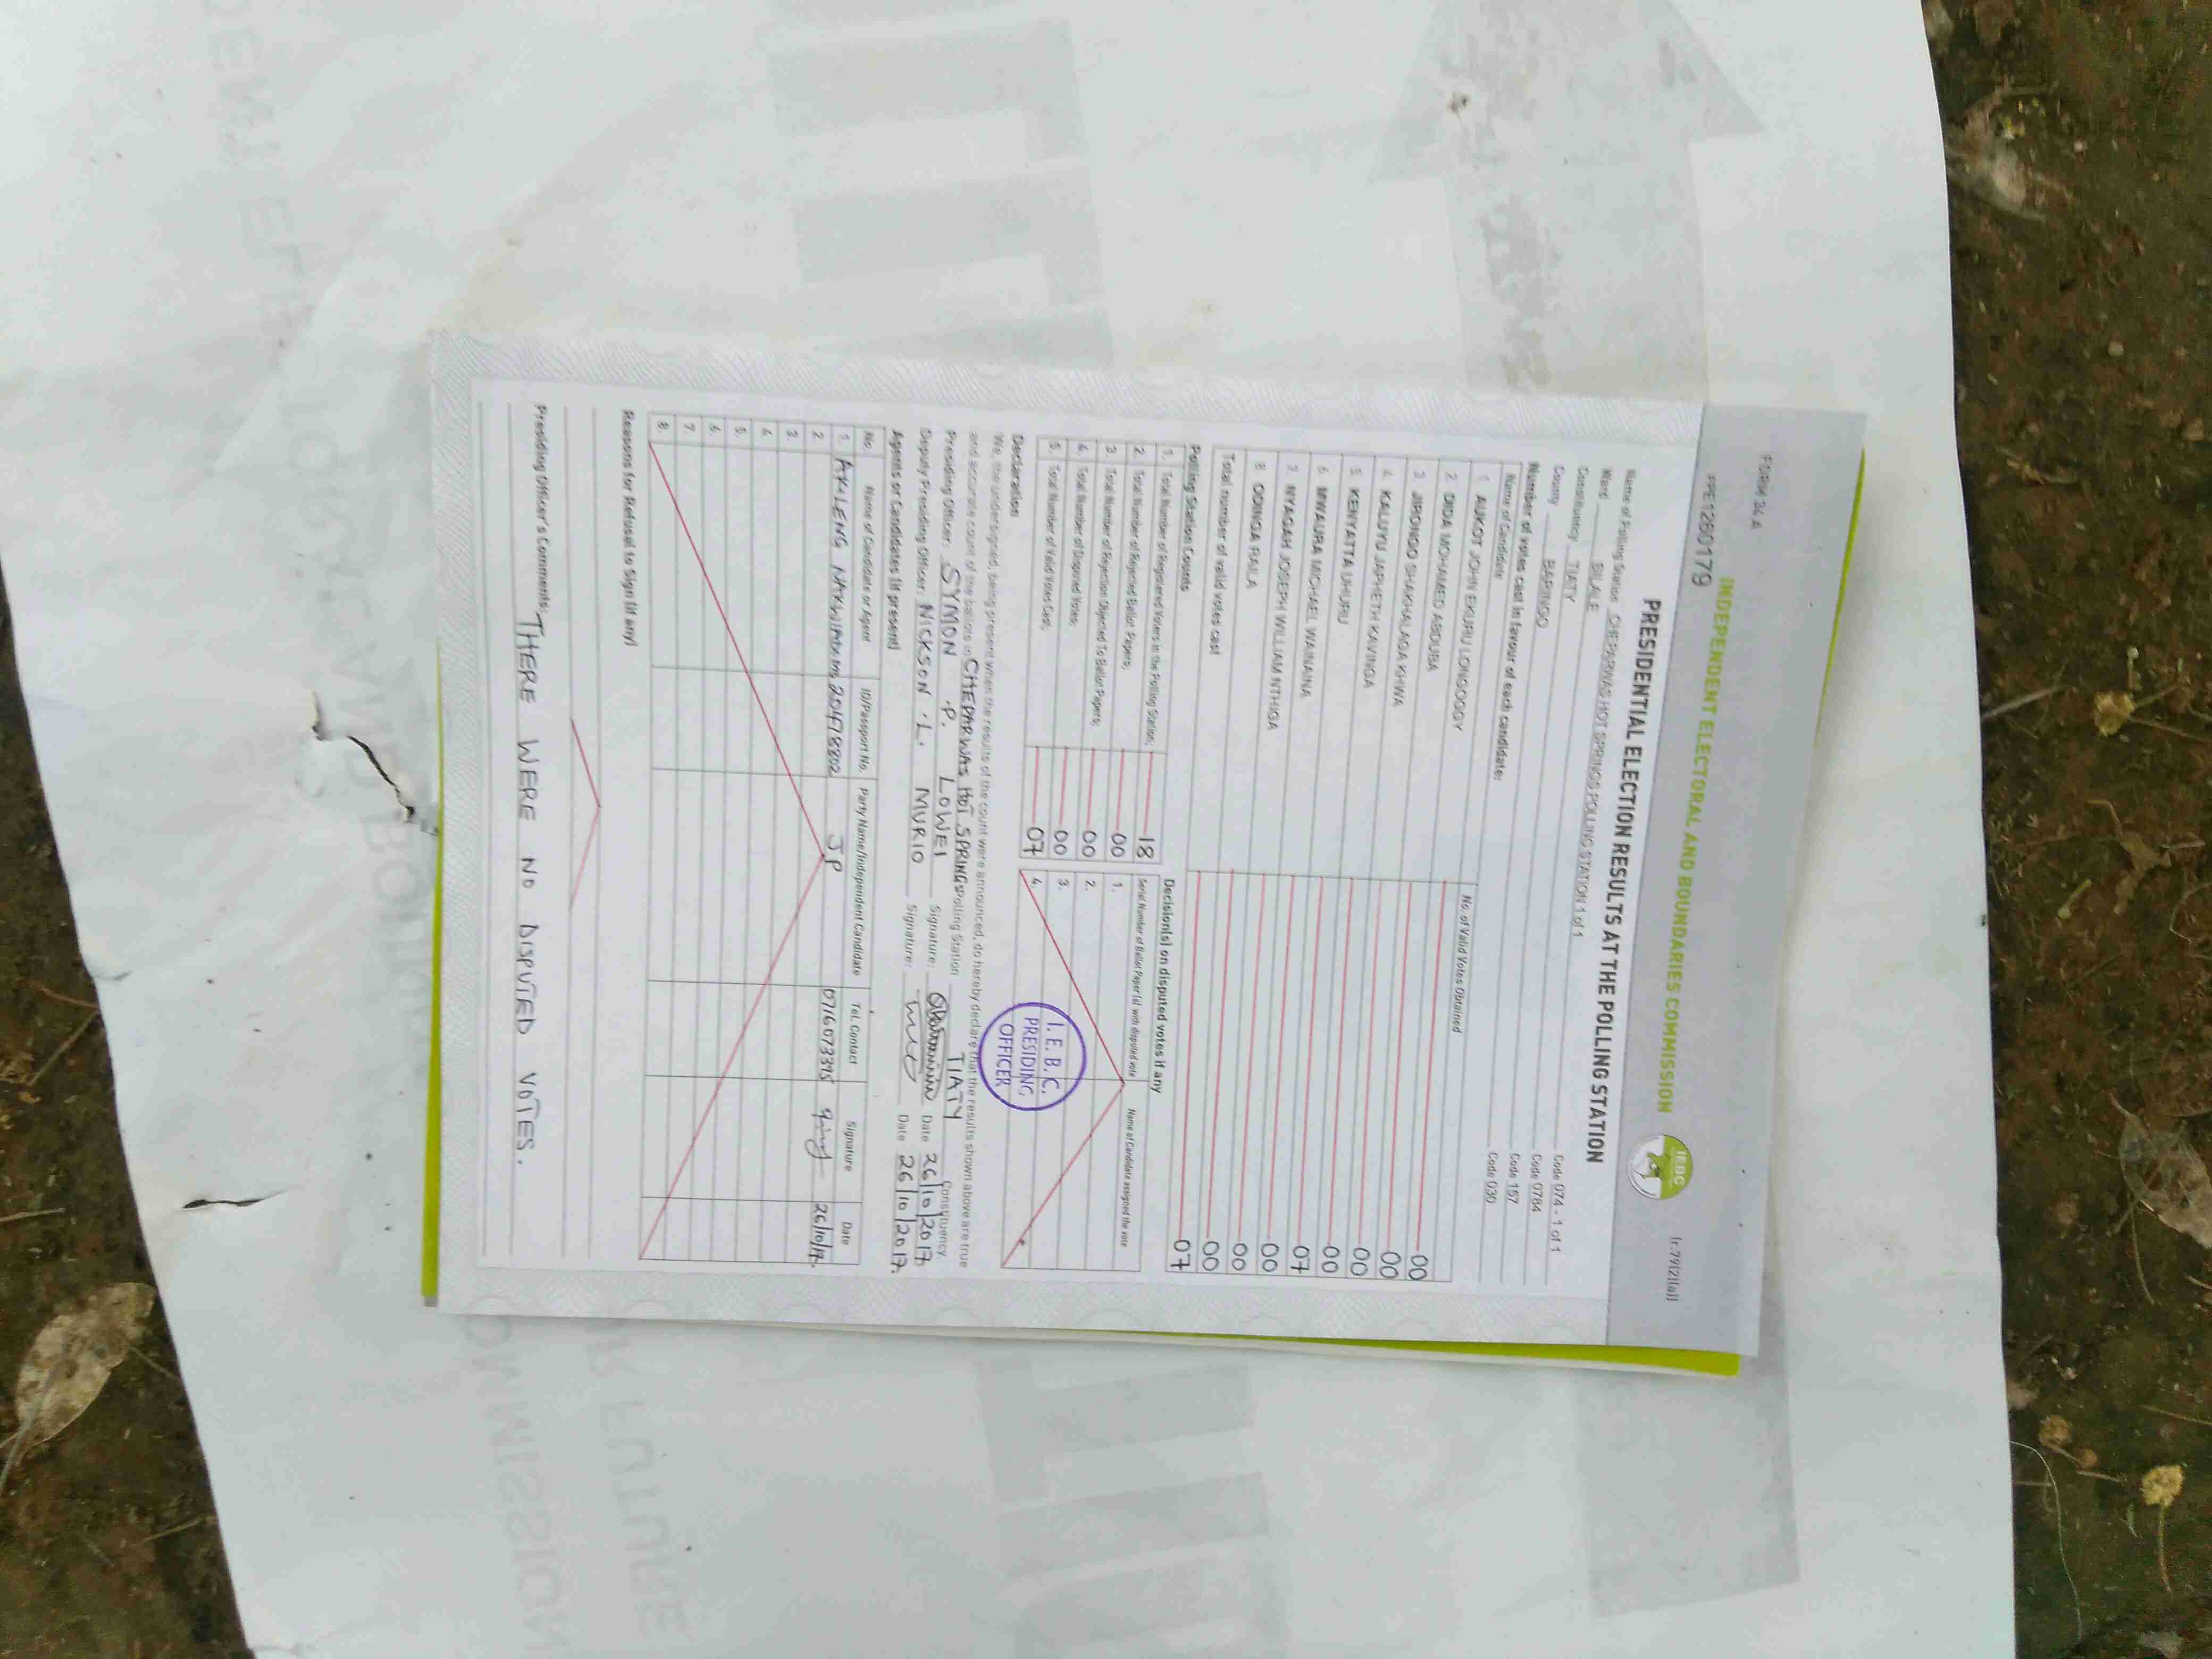 FORM 34 A
(r.79(2)(a))
PPE1260179
INDEPENDENT ELECTORAL AND BOUNDARIES COMMISSION
IEBC
PRESIDENTIAL ELECTION RESULTS AT THE POLLING STATION
Name of Polling Station CHEPARWAS HOT SPRINGS POLLING STATION 1 of 1 Code 074 - 1 of 1
Ward SILALE Code 0784
Constituency TIATY Code 157
County BARINGO Code 030
Number of votes cast in favour of each candidate:
Name of Candidate No. of Valid Votes Obtained
1. AUKOT JOHN EKURU LONGOGGY 00
2. DIDA MOHAMED ABDUBA 00
3. JIRONGO SHAKHALAGA KHWA 00
4. KALUYU JAPHETH KAVINGA 00
5. KENYATTA UHURU 07
6. MWAURA MICHAEL WAINAINA 00
7. NYAGAH JOSEPH WILLIAM NTHIGA 00
8. ODINGA RAILA 00
Total number of valid votes cast 07
Polling Station Counts
1. Total Number of Registered Voters in the Polling Station; 18
2. Total Number of Rejected Ballot Papers; 00
3. Total Number of Rejection Objected To Ballot Papers; 00
4. Total Number of Disputed Votes; 00
5. Total Number of Valid Votes Cast; 07
Decision(s) on disputed votes if any
Serial Number of Ballot Paper (s) with disputed vote Name of Candidate assigned the vote
1.
2.
3.
4.
I.E.B.C.
PRESIDING
OFFICER
Declaration
We, the undersigned, being present when the results of the count were announced, do hereby declare that the results shown above are true
and accurate count of the ballots in CHEPARWAS HOT SPRINGS Polling Station TIATY Constituency
Presiding Officer: SYMON .P. LOWEI Signature: Date 26/10/2017
Deputy Presiding Officer: NICKSON .L. MURIO Signature: Date 26/10/2017.
Agents or Candidates (if present)
No. Name of Candidate or Agent ID/Passport No. Party Name/Independent Candidate Tel. Contact Signature Date
1. 20478802 JP 0716073395 26/10/17.
2.
3.
4.
5.
6.
7.
8.
Reasons for Refusal to Sign (if any)
Presiding Officer's Comments: THERE WERE NO DISPUTED VOTES.